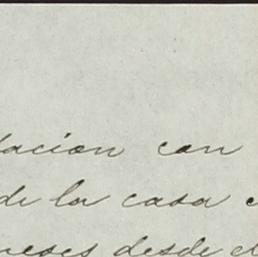 lacion con
de la casa
meses desde el